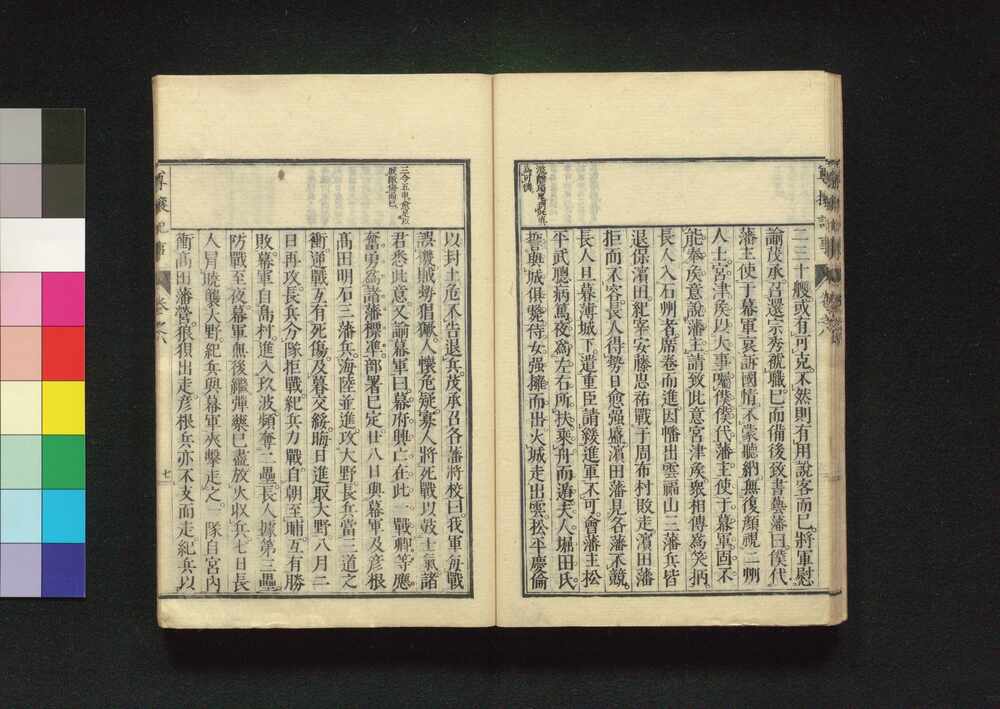 二三十艘或有可克不然則有用說客而已將軍慰
諭茂承召還宗秀就職已而備後致書藝藩曰僕代
藩主使于幕軍哀訴國情不蒙聽納無復顏覩二州
人士宮津侯以大事囑僕僕代藩主使于幕軍固不
能奉侯意說藩主請致此意宮津侯衆相傳爲笑柄
長人入石州者席卷而進因幡出雲福山三藩兵皆
退保濱田紀宰安藤忠祐戰于周布村敗走濱田藩
拒而不容長人得勢日愈强盛濱田藩見各藩不競
長人且暮薄城下遣重臣請緩進軍不可會藩主松
平武聰病篤夜爲左右所扶乘舟而遁夫人堀田氏
誓與城俱斃侍女强擁而出火城走出雲松平慶倫
以封土危不告退兵茂承召各藩將校曰我軍每戰
誤機賊勢猖獗人懷危疑寡人將死戰以鼓士氣諸
君悉此意又諭幕軍曰幕府興亡在此一戰卿等應
奮勇爲諸藩標準部署已定廿八日與幕軍及彥根
高田明石三藩兵海陸並進攻大野長兵當三道之
衝逆戰互有死傷及暮交綏晦日進取大野八月二
日再攻長兵分隊拒戰紀兵力戰自朝至晡互有勝
敗幕軍自鳥村進入玖波頻奪二壘長人據第三壘
防戰至夜幕軍無後繼彈藥已盡放火收兵七日長
人冒曉襲大野紀兵與幕軍夾擊走之一隊自宮內
衝高田藩營狼狽出走彥根兵亦不支而走紀兵以
七